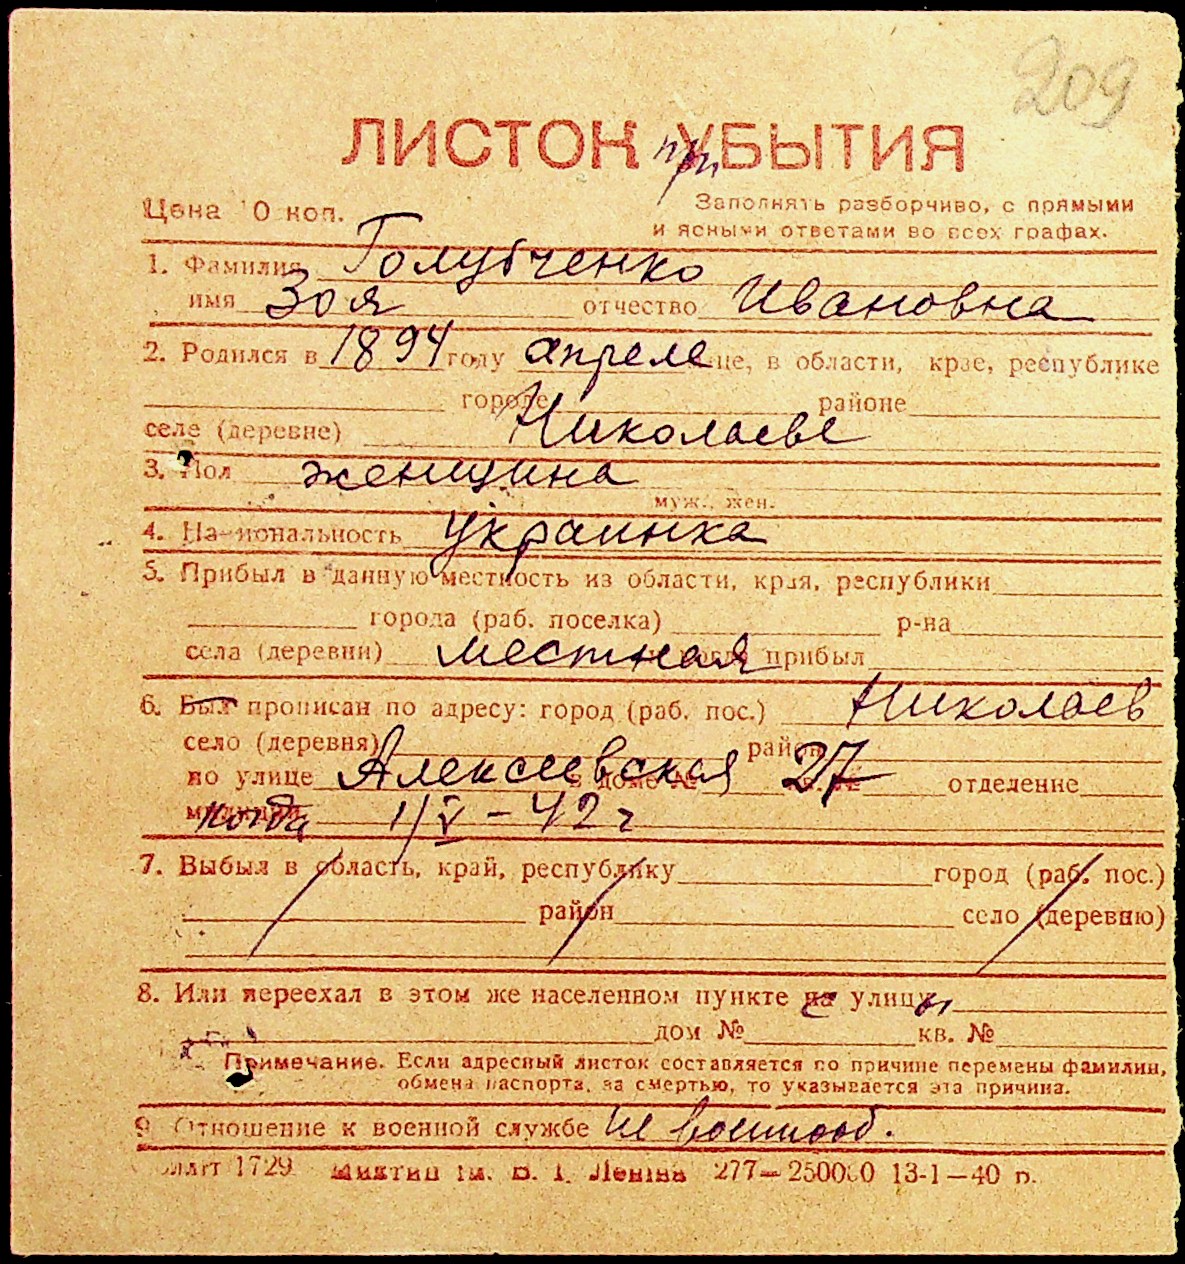 209
ЛИСТОК при УБЫТИЯ
Цена 10 коп.
Заполнять разборчиво, с прямыми
и ясными ответами во всех графах.
1. Фамилия Голубченко
имя Зоя отчество Ивановна
2. Родился в 1894 году апреле це, в области, крае, республике
городе районе
селе (деревне) Николаеве
3. Пол женщина
муж., жен.
4. Национальность украинка
5. Прибыл в данную местность из области, края, республики
города (раб. поселка) р-на
села (деревни) местная когда прибыл
6. Был прописан по адресу: город (раб. пос.) Николаев
село (деревня) район
по улице Алексеевская в доме № 27 кв. № отделение
милиции когда 1/V – 42 г
7. Выбыл в область, край, республику город (раб. пос.)
район село (деревню)
8. Или переехал в этом же населенном пункте с улицы
дом № кв. №
Примечание. Если адресный листок составляется по причине перемены фамилии,
обмена паспорта, за смертью, то указывается эта причина.
9. Отношение к военной службе не военнооб.
1729 им. В. І. Леніна 277—250000 13-1—40 р.